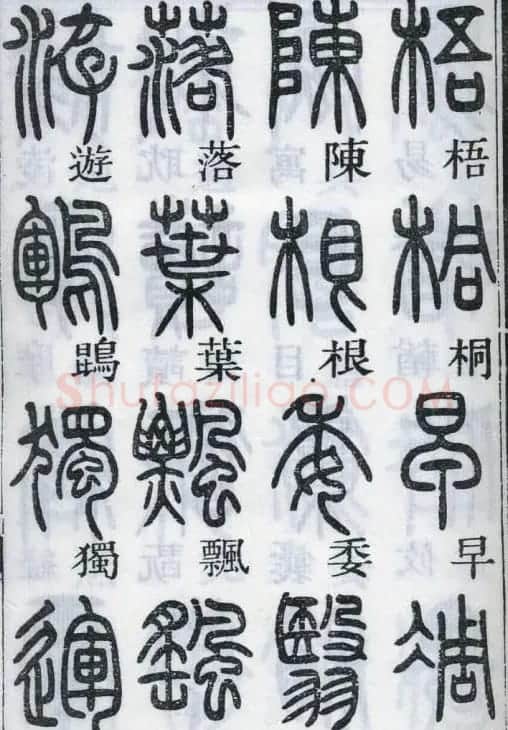 梧桐早凋
陳根委翳
落葉飄颻
遊鵾獨運
Shufaziliao.COM